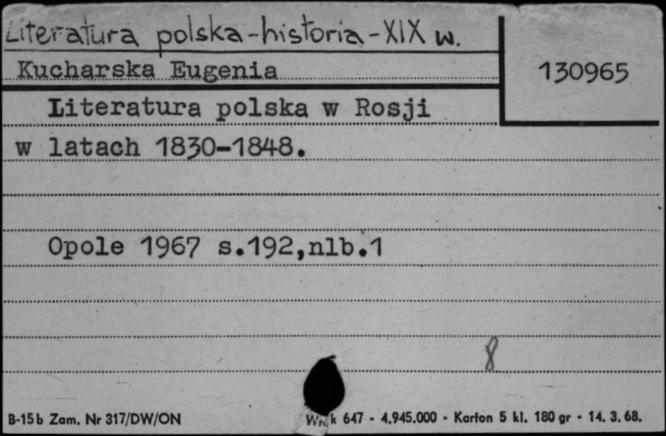 Literatura polska-historia-XIX w.
Kucharska Eugenia
130965
Literatura polska w Rosji
w latach 1830-1848.
Opole 1967 s.192,nlb.1
8
B-15b Zam. Nr 317/DW/ON
k 647 - 4.945.000 - Karton 5 kl. 180 gr - 14. 3. 68.